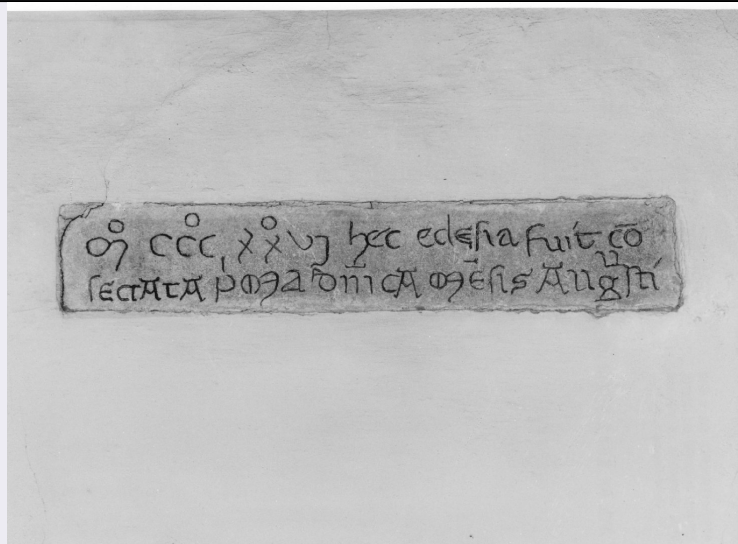 mͦ ccͦc xͦxvj hec eclesia fuit cō
secrata pͥma domīca mēsis augusti